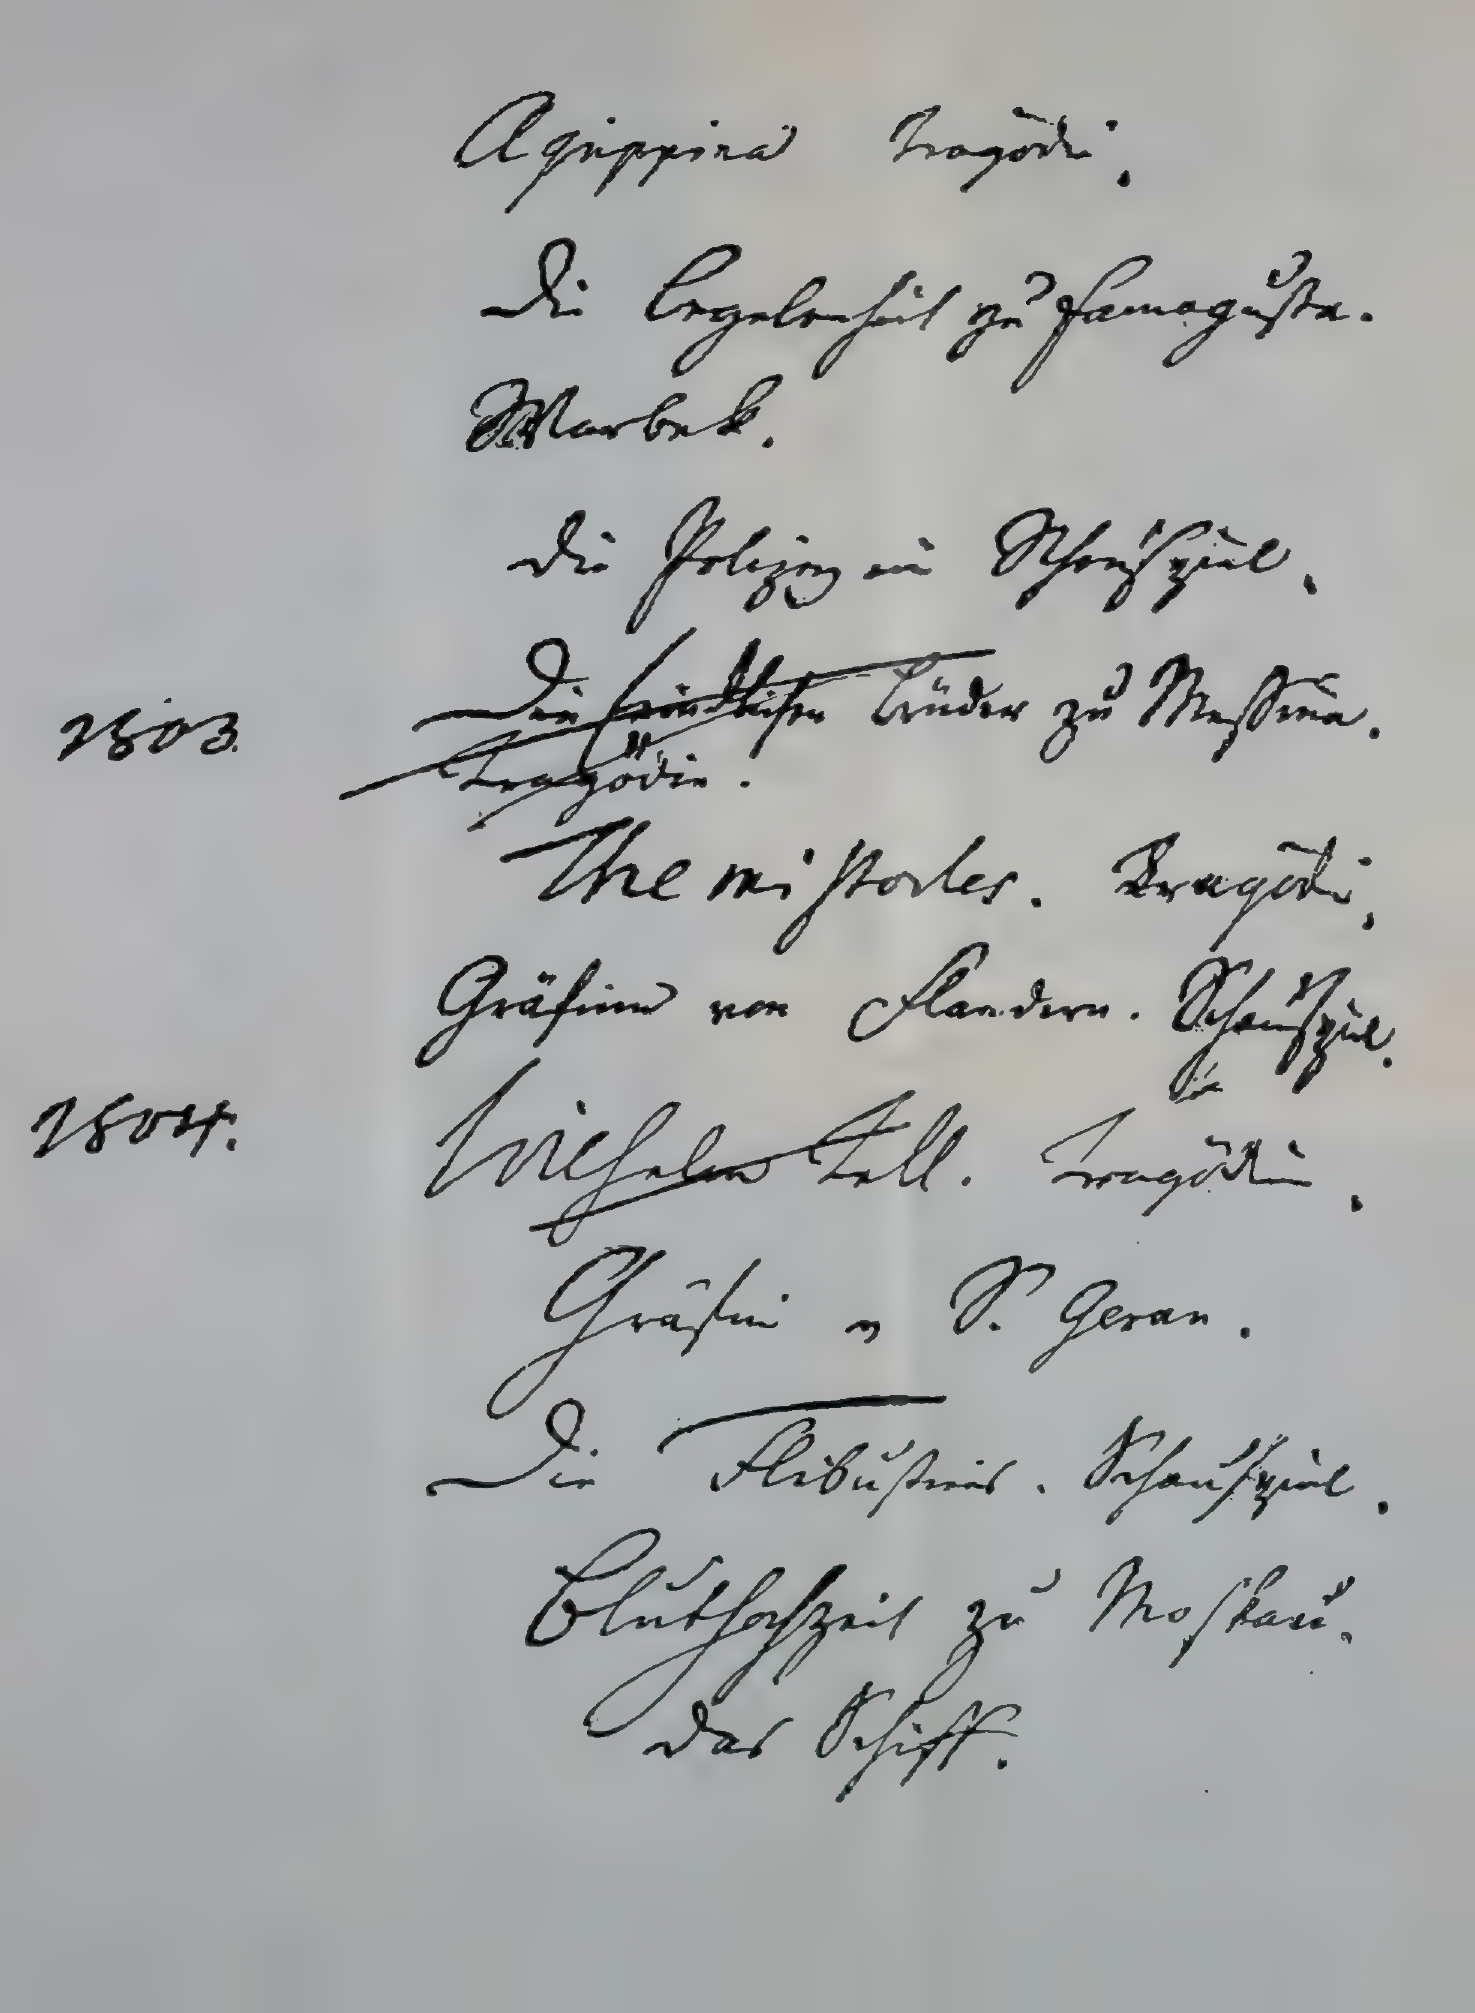 Agrippina Tragödie.
Die Begebenheit zu Famagusta.
Warbek.
Die Polizey ein Schauspiel.
1803. Die feindlichen Brüder zu Messina.
Tragödie.
Themistocles. Tragödie.
Gräfinn von Flandern. Schauspiel.
1804. Wilhelm Tell. Tragödie.
Gräfin v S. Geran.
Die Flibustiers. Schauspiel.
Bluthochzeit zu Moskau.
Das Schiff.